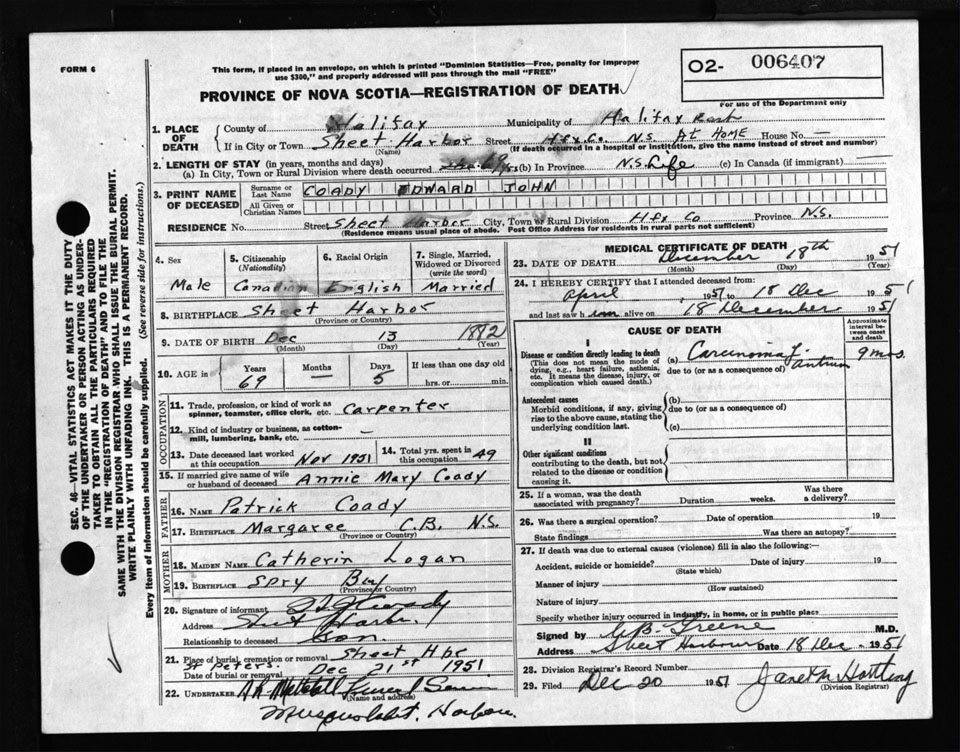 FORM 6
This form, if placed in an envelope, on which is printed "Dominion Statistics—Free, penalty for improper
use $300," and properly addressed will pass through the mail "FREE"
PROVINCE OF NOVA SCOTIA—REGISTRATION OF DEATH
O2- 006407
For use of the Department only
SEC. 46—VITAL STATISTICS ACT MAKES IT THE DUTY
OF THE UNDERTAKER OR PERSON ACTING AS UNDER-
TAKER TO OBTAIN ALL THE PARTICULARS REQUIRED
IN THE "REGISTRATION OF DEATH" AND TO FILE THE
SAME WITH THE DIVISION REGISTRAR WHO SHALL ISSUE THE BURIAL PERMIT.
WRITE PLAINLY WITH UNFADING INK. THIS IS A PERMANENT RECORD.
Every item of information should be carefully supplied. (See reverse side for instructions.)
1. PLACE OF DEATH
County of Halifax Municipality of Halifax
If in City or Town Sheet Harbor Street Hfx. Co. N.S. AT HOME House No. —
(Name) (If death occurred in a hospital or institution, give the name instead of street and number)
2. LENGTH OF STAY (in years, months and days)
(a) In City, Town or Rural Division where death occurred 69 yrs (b) In Province N.S. Life (c) In Canada (if immigrant) —
3. PRINT NAME OF DECEASED
Surname or Last Name COADY EDWARD JOHN
All Given or Christian Names
RESIDENCE No. Street Sheet Harbor City, Town or Rural Division Hfx Co Province N.S.
(Residence means usual place of abode. Post Office Address for residents in rural parts not sufficient)
4. Sex
Male
5. Citizenship (Nationality)
Canadian
6. Racial Origin
English
7. Single, Married, Widowed or Divorced (write the word)
Married
8. BIRTHPLACE Sheet Harbor
(Province or Country)
9. DATE OF BIRTH Dec 13 1882
(Month) (Day) (Year)
10. AGE in Years Months Days If less than one day old
69 5 hrs. or min.
OCCUPATION
11. Trade, profession, or kind of work as
spinner, teamster, office clerk, etc. Carpenter
12. Kind of industry or business, as cotton-
mill, lumbering, bank, etc. —
13. Date deceased last worked
at this occupation Nov 1951
14. Total yrs. spent in
this occupation 49
15. If married give name of wife
or husband of deceased Annie Mary Coady
FATHER
16. NAME Patrick Coady
17. BIRTHPLACE Margaree C.B. N.S.
(Province or Country)
MOTHER
18. MAIDEN NAME Catherin Logan
19. BIRTHPLACE Spry Bay
(Province or Country)
20. Signature of informant Coady
Address Sheet Harbor
Relationship to deceased Son.
21. Place of burial, cremation or removal Sheet Hbr
St Peters.
Date of burial or removal Dec 21st 1951
22. UNDERTAKER Mitchell Funeral Service
(Name and address)
Musquodoboit Harbour.
MEDICAL CERTIFICATE OF DEATH
23. DATE OF DEATH December 18th 1951
(Month) (Day) (Year)
24. I HEREBY CERTIFY that I attended deceased from:
April, 1951 to 18 Dec 1951
and last saw him alive on 18 December 1951
CAUSE OF DEATH
Approximate interval between onset and death
I
Disease or condition directly leading to death
(This does not mean the mode of
dying, e.g., heart failure, asthenia,
etc. It means the disease, injury, or
complication which caused death.)
(a) Carcinoma of antrum 9 mos.
due to (or as a consequence of)
Antecedent causes
Morbid conditions, if any, giving
rise to the above cause, stating the
underlying condition last.
(b)
due to (or as a consequence of)
(c)
II
Other significant conditions
contributing to the death, but not
related to the disease or condition
causing it.
25. If a woman, was the death
associated with pregnancy? Duration weeks. Was there
a delivery?
26. Was there a surgical operation? Date of operation 19
State findings Was there an autopsy?
27. If death was due to external causes (violence) fill in also the following:—
Accident, suicide or homicide? Date of injury 19
(State which)
Manner of injury
(How sustained)
Nature of injury
Specify whether injury occurred in industry, in home, or in public place
Signed by Greene M.D.
Address Sheet Harbour Date 18 Dec 1951
28. Division Registrar's Record Number
29. Filed Dec 20 1951 Janet Hartling
(Division Registrar)